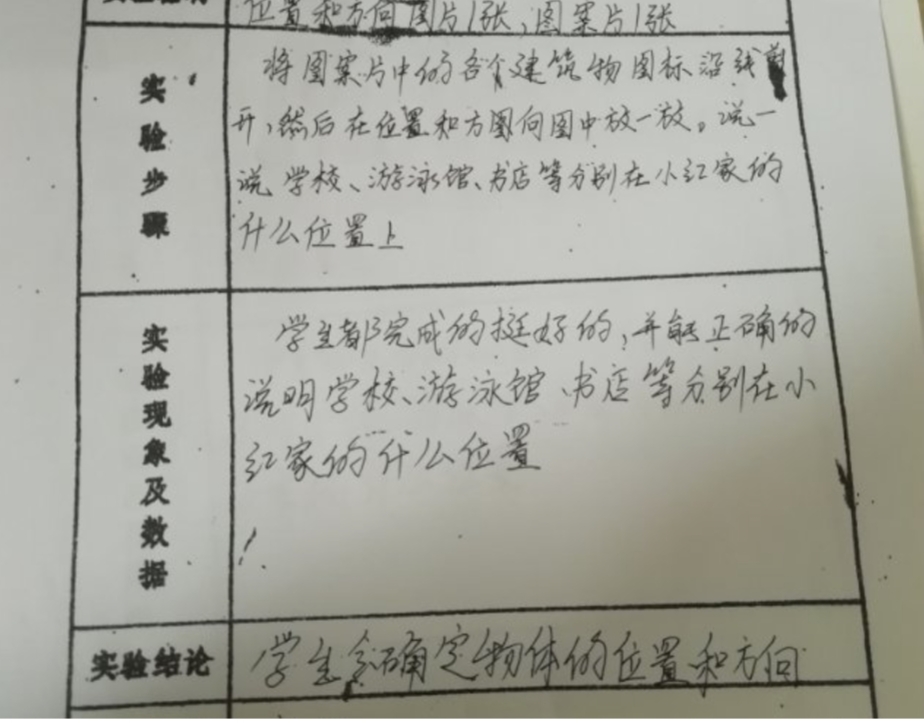 位置和方向图片1张，图案片1张
实验步骤
将图案片中的各个建筑物图标沿线剪
开，然后在位置和方图向图中放一放。说一
说学校、游泳馆、书店等分别在小红家的
什么位置上
实验现象及数据
学生都完成的挺好的，并能正确的
说明学校、游泳馆、书店等分别在小
红家的什么位置
实验结论
学生会确定物体的位置和方向